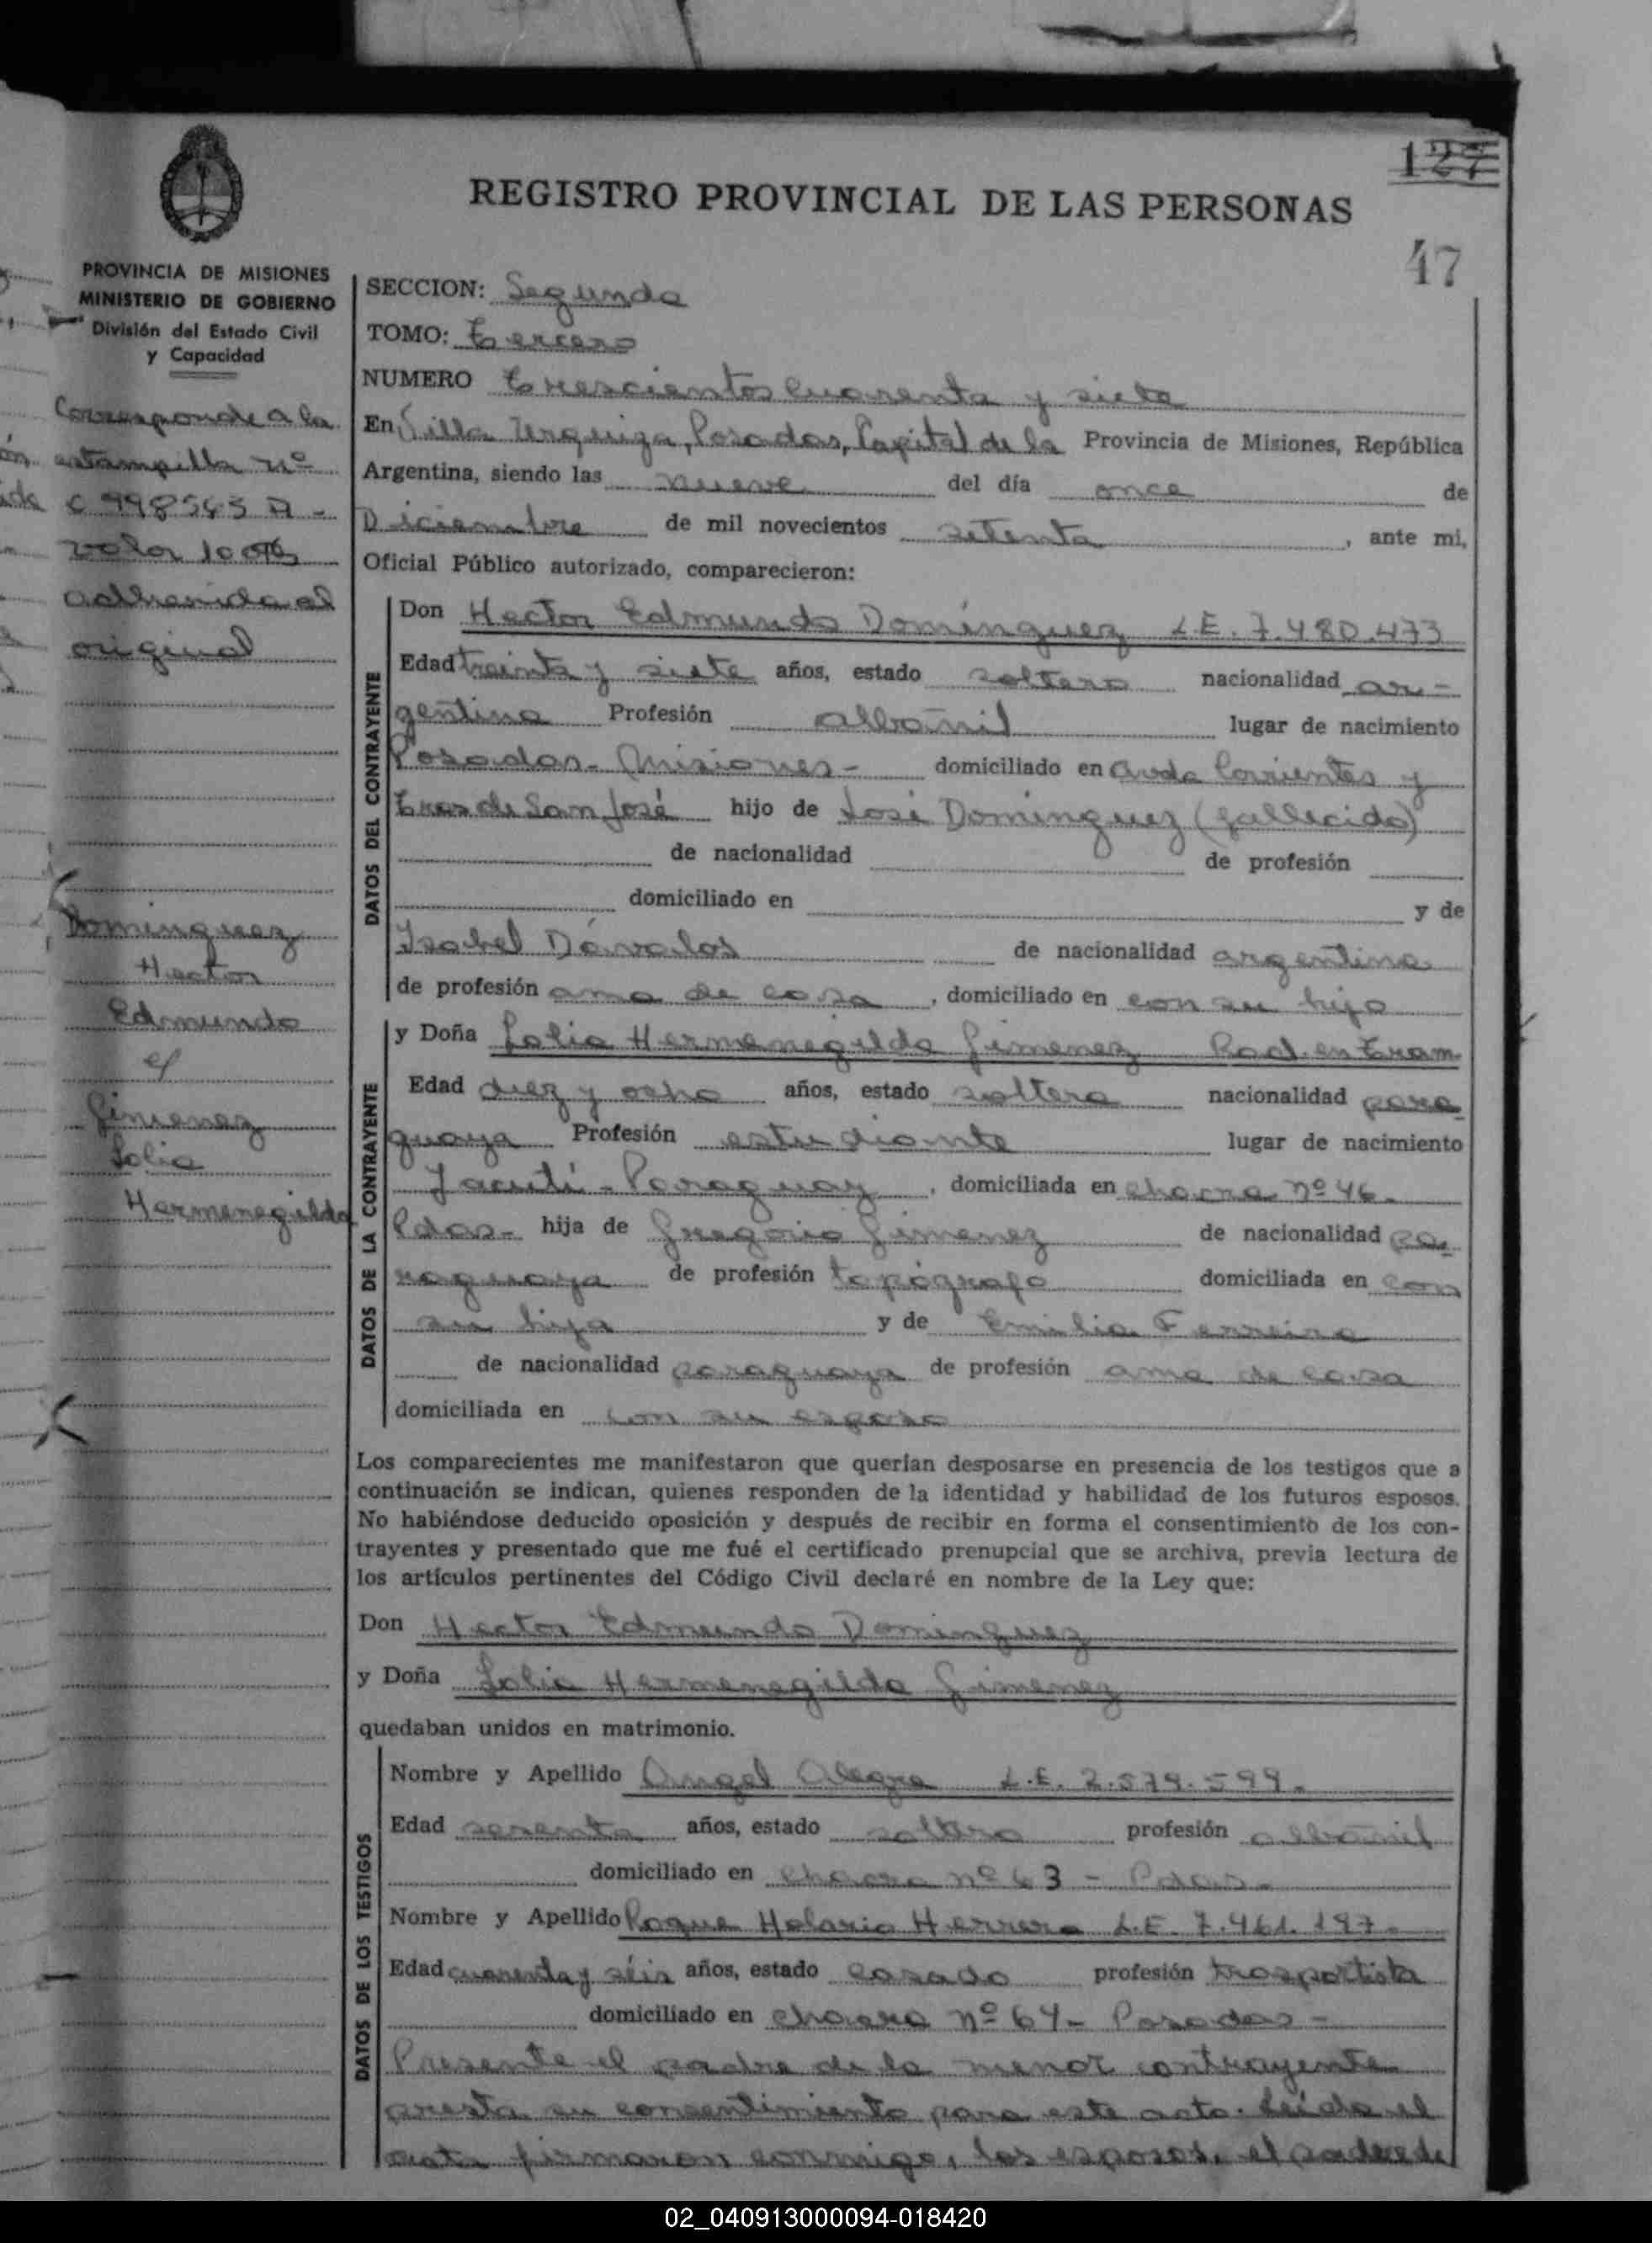 127
REGISTRO PROVINCIAL DE LAS PERSONAS
47
PROVINCIA DE MISIONES
MINISTERIO DE GOBIERNO
División del Estado Civil
y Capacidad
Corresponde a la
estampilla nº
C 998563 A -
valor 10
adherida al
original
Dominguez
Hector
Edmundo
c/
Gimenez
Lolia
Hermenegilda
SECCION: Segunda
TOMO: Tercero
NUMERO Trescientos cuarenta y siete
En Villa Urquiza, Posadas, Capital de la Provincia de Misiones, República
Argentina, siendo las nueve del día once de
Diciembre de mil novecientos setenta, ante mi,
Oficial Público autorizado, comparecieron:
DATOS DEL CONTRAYENTE
Don Hector Edmundo Domínguez L.E. 7.480.473
Edad treinta y siete años, estado soltero nacionalidad ar-
gentina Profesión albañil lugar de nacimiento
Posadas - Misiones - domiciliado en Avda Corrientes y
tres de San José hijo de José Dominguez (fallecido)
de nacionalidad de profesión
domiciliado en y de
Isabel Dávalos de nacionalidad argentina
de profesión ama de casa, domiciliado en con su hijo
DATOS DE LA CONTRAYENTE
y Doña Lolia Hermenegilda Gimenez Rad. en tram.
Edad diez y ocho años, estado soltera nacionalidad para
guaya Profesión estudiante lugar de nacimiento
- Paraguay, domiciliada en chacra nº 46.
Pdas- hija de Gregorio Gimenez de nacionalidad pa-
raguaya de profesión topógrafo domiciliada en con
su hija y de Emilia Ferreira
de nacionalidad paraguaya de profesión ama de casa
domiciliada en con su esposo
Los comparecientes me manifestaron que querían desposarse en presencia de los testigos que a
continuación se indican, quienes responden de la identidad y habilidad de los futuros esposos.
No habiéndose deducido oposición y después de recibir en forma el consentimiento de los con-
trayentes y presentado que me fué el certificado prenupcial que se archiva, previa lectura de
los artículos pertinentes del Código Civil declaré en nombre de la Ley que:
Don Hector Edmundo Dominguez
y Doña Lolia Hermenegilda Gimenez
quedaban unidos en matrimonio.
DATOS DE LOS TESTIGOS
Nombre y Apellido Angel Alegre L.E. 2.579.599.
Edad sesenta años, estado soltero profesión albañil
domiciliado en Chacra nº 63 - Pdas.
Nombre y Apellido Roque Holario Herrera L.E. 7.461.197.
Edad cuarenta y séis años, estado casado profesión trasportista
domiciliado en chacra nº 64 - Posadas -
Presente el padre de la menor contrayente
presta su consentimiento para este acto. Leida el
acta firmaron conmigo, los esposos, el padre de
02_040913000094-018420